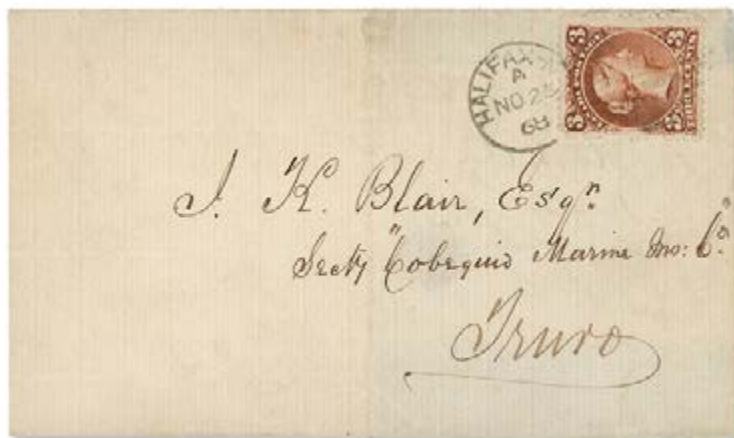 HALIFAX
A
NO 25
68
3 3
THREE CENTS
3 3
J. K. Blair, Esqr.
Secty "Cobequid Marine Ins: Co."
Truro